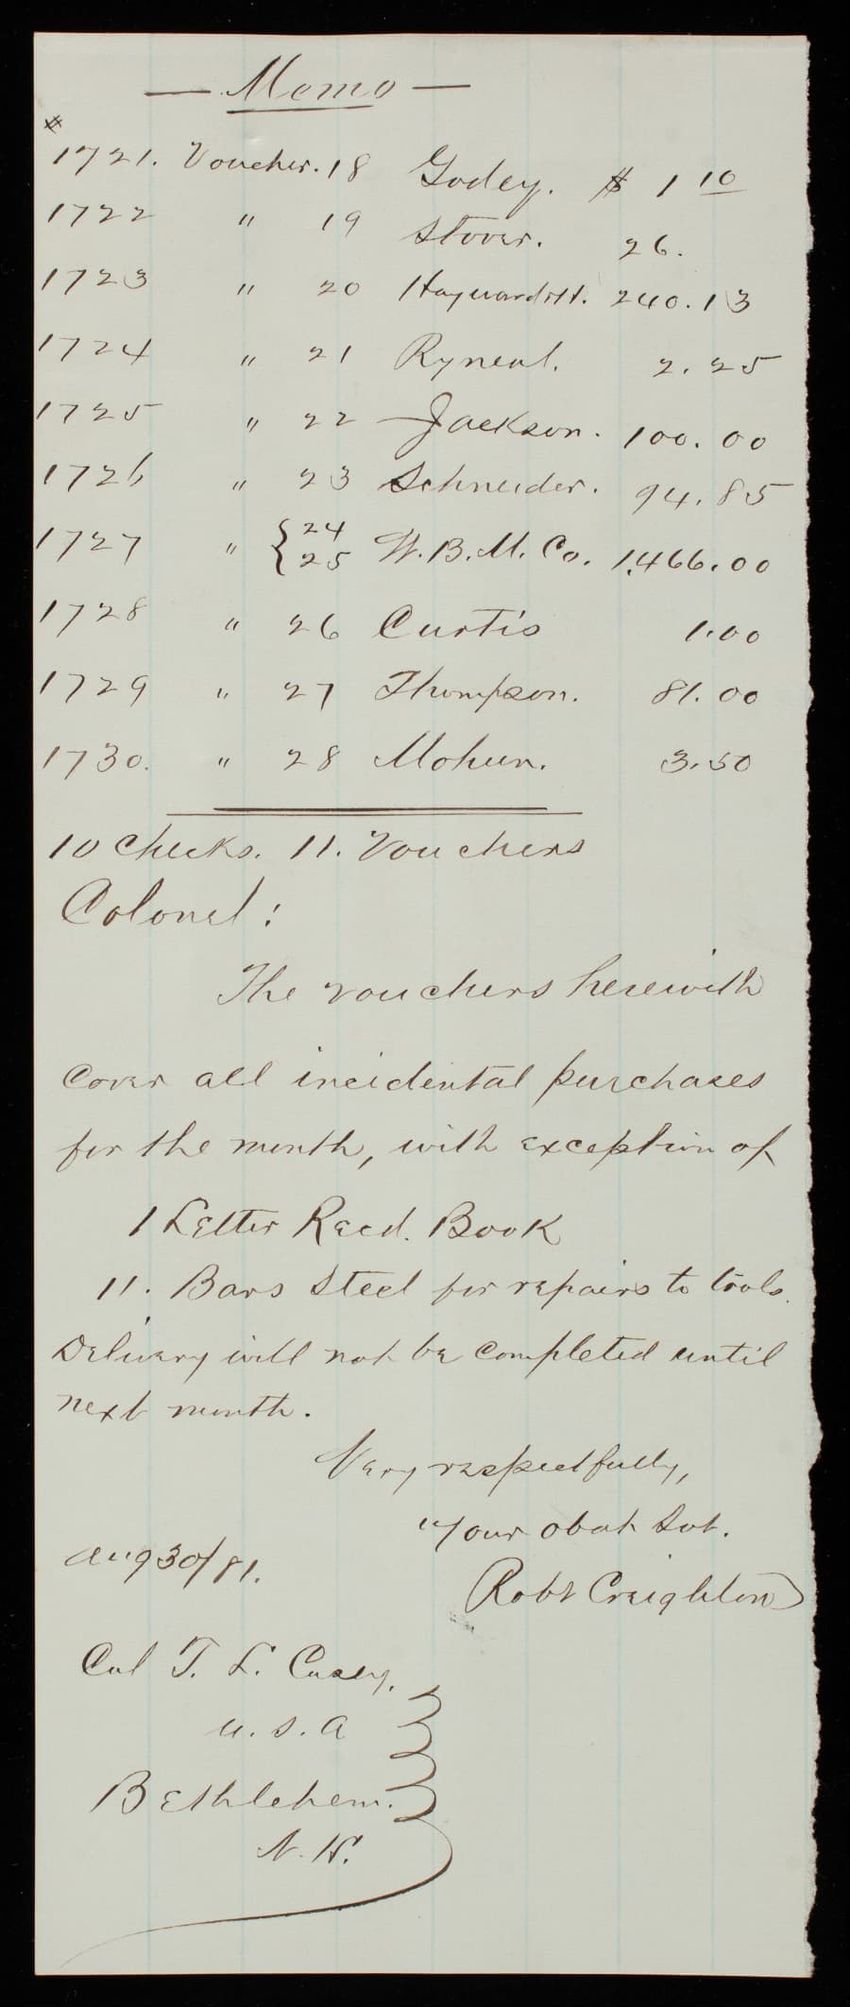 — Memo —
#
1721. Voucher. 18 Godey. $ 1 10
1722 " 19 Stover. 26.
1723 " 20 Haywardtt. 240.13
1724 " 21 Ryneal. 2.25
1725 " 22 Jackson. 100.00
1726 " 23 Schneider. 94.85
1727 " { 24 25 W.B.M. Co. 1,466.00
1728 " 26 Curtis 1.00
1729 " 27 Thompson. 81.00
1730. " 28 Mohun. 3.50
10 Checks. 11. Vouchers
Colonel:
The vouchers herewith
cover all incidental purchases
for the month, with exception of
1 Letter Recd. Book
11. Bars Steel for repairs to tools.
Delivery will not be completed until
next month.
Very respectfully,
Your obdt Svt.
Aug 30/81.
Robt Creighton
Col T. L. Casey.
U.S.A
Bethlehem.
N.H.